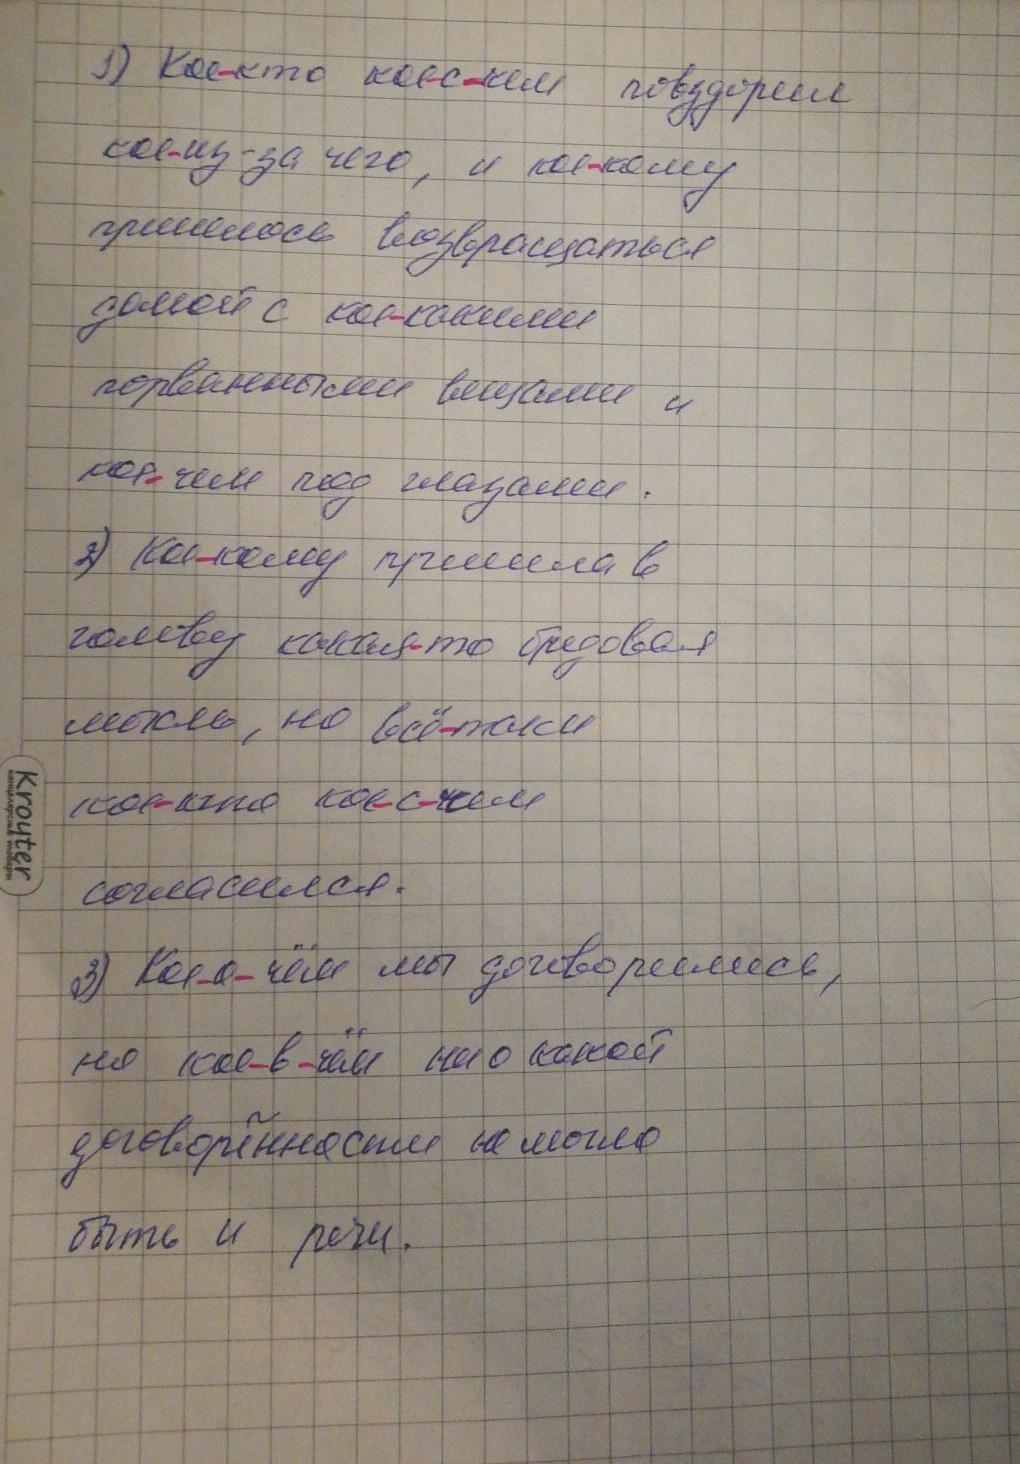 1) Кое-кто кое-с-чем повздорил
кое-из-за чего, и кое-кому
пришлось возвращаться
домой с кое-какими
порванными вещами и
кое-чем под глазами.
2) Кое-кому пришла в
голову какая-то бредовая
мысль, но всё-таки
кое-кто кое-с-чем
согласился.
3) Кое-о-чём мы договорились,
но кое-в-чём ни о какой
договорённости не могло
быть и речи.
Krouter
канцелярские товары